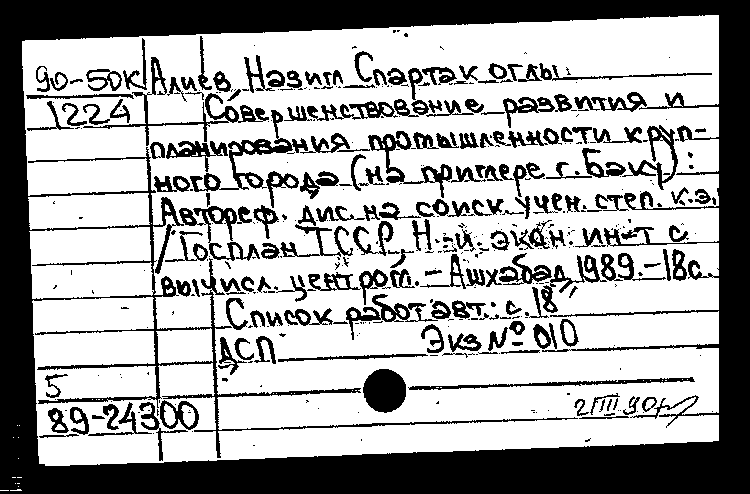 90-50К Алиев, Назим Спартак оглы.
1224 Совершенствование развития и
планирования промышленности круп-
ного города (на примере г. Баку):
Автореф. дис. на соиск. учен. степ. к.э.
/ Госплан ТССР, Н.-и. экон. ин-т с
вычисл. центром. - Ашхабад, 1989. - 18с.
Список работ авт.: с. 18
ДСП Экз № 010
5
89-24300
2/III 90г